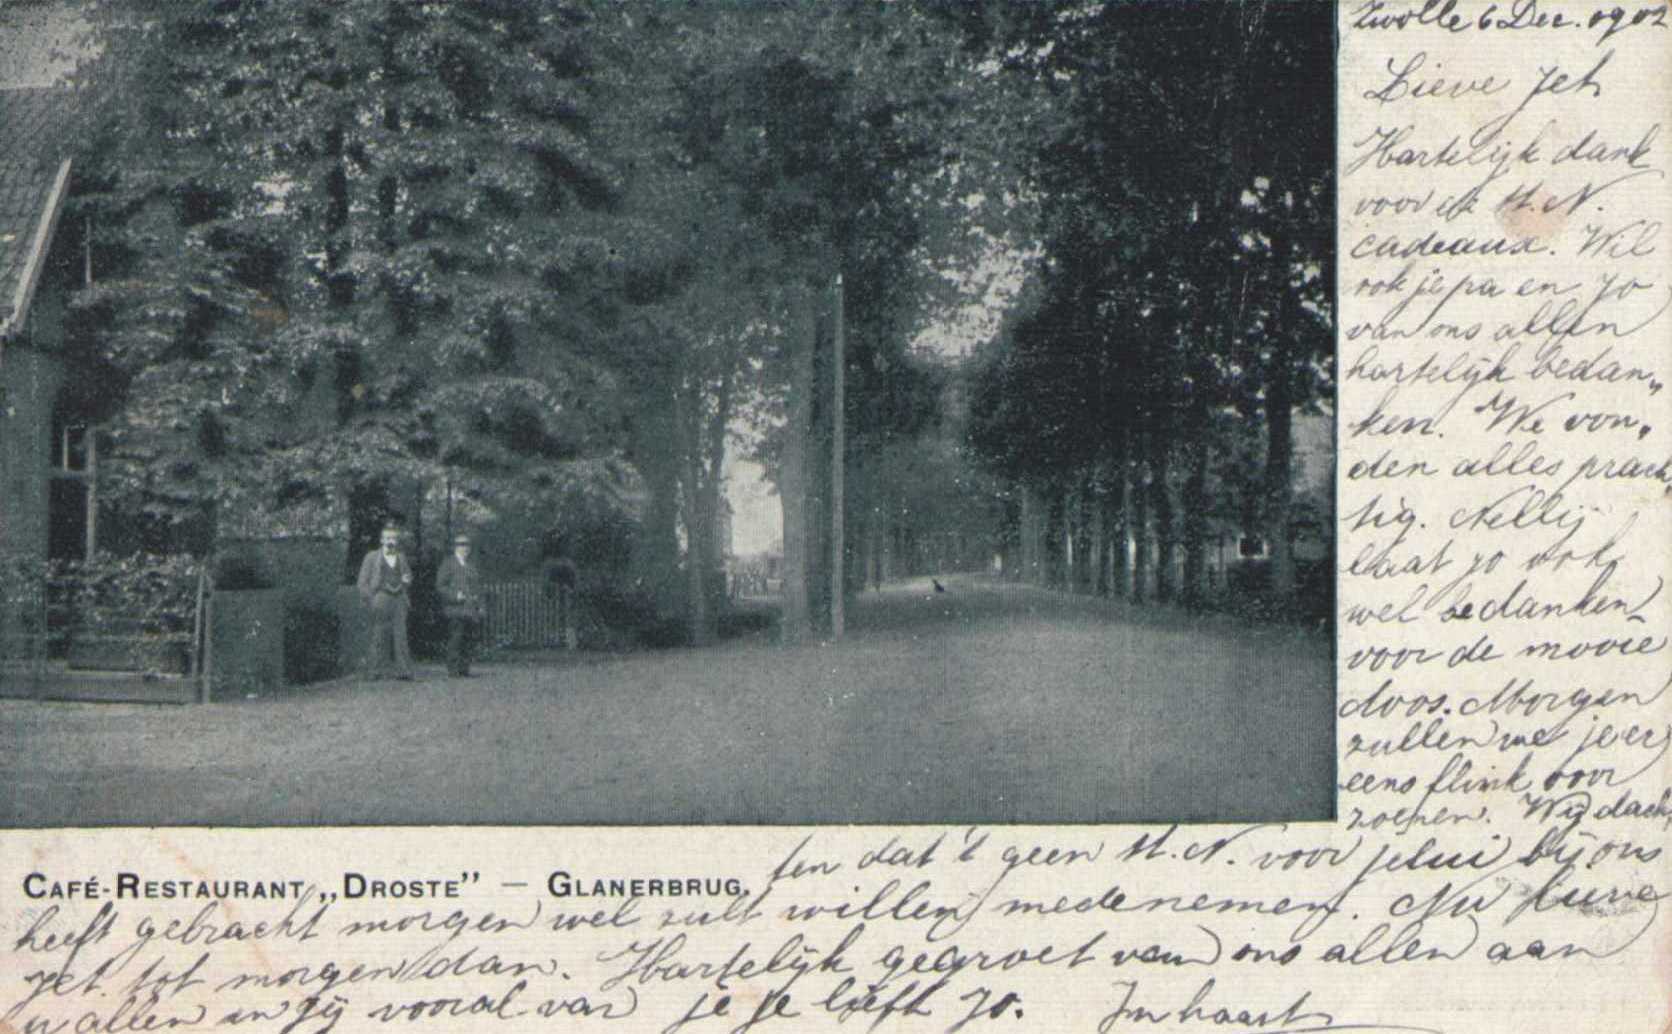 Zwolle 6 Dec. 1902
Lieve Jet
Hartelijk dank
voor de St. N.
cadeaux. Wil
ook je pa en Jo
van ons allen
hartelijk bedan„
ken. We von„
den alles prach„
tig. Nellij
laat Jo ook
wel bedanken
voor de mooie
doos. Morgen
zullen we je er
eens flink voor
zoenen. Wij dach„
CAFÉ-RESTAURANT „DROSTE” — GLANERBRUG.
ten dat 't geen St. N. voor jelui bij ons
heeft gebracht morgen wel zult willen medenemen. Nu lieve
Jet tot morgen dan. Hartelijk gegroet van ons allen aan
u allen en jij vooral van je je liefh. Jo. In haast